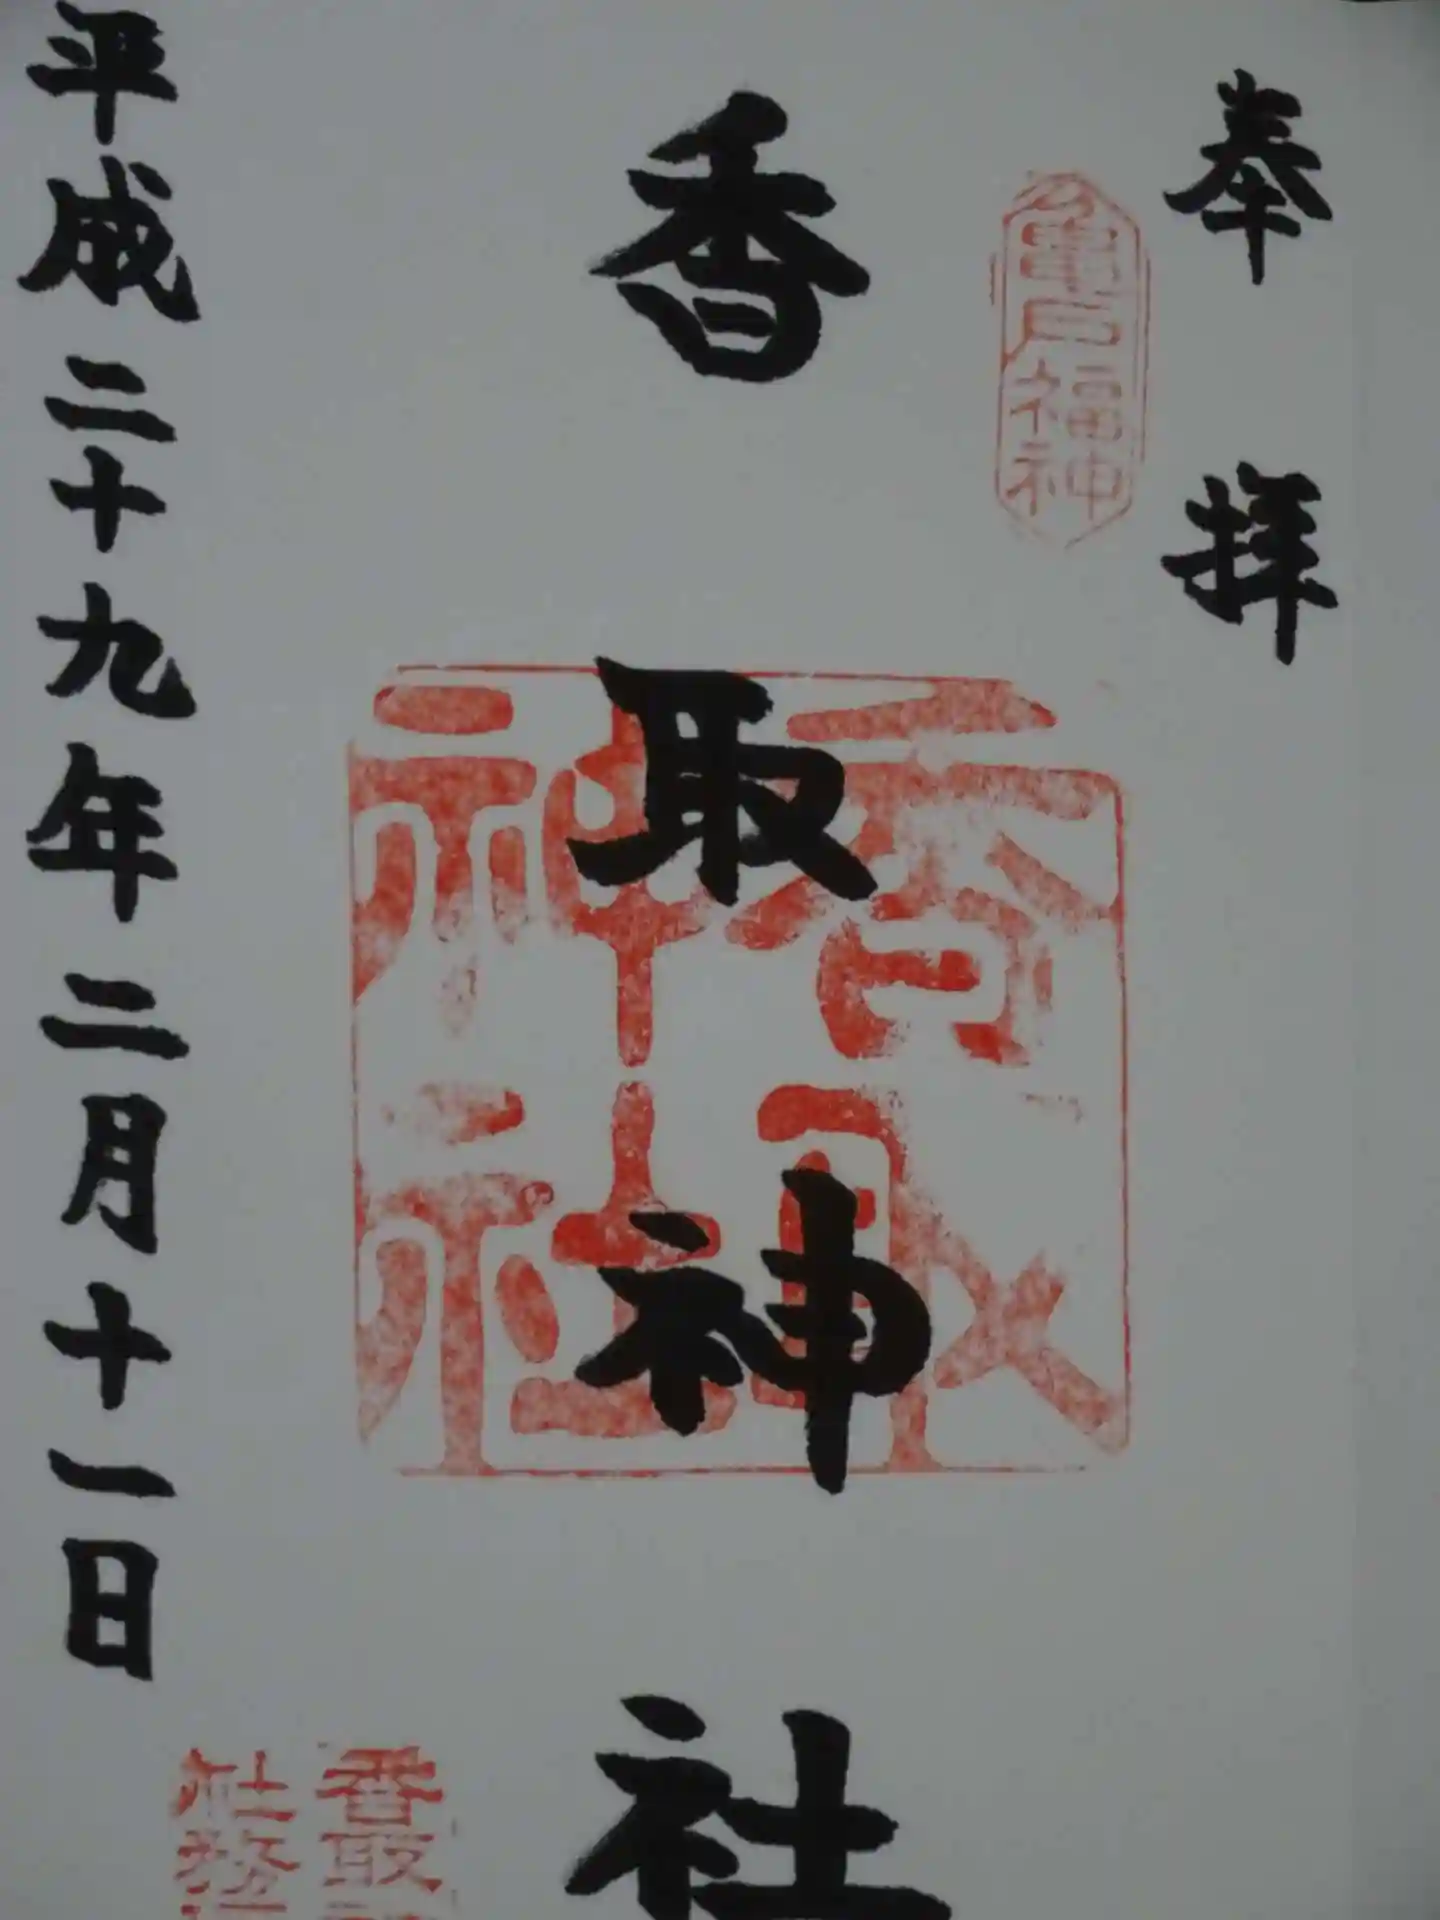 奉拝
亀戸福神
香取神社
香取
神社
平成二十九年二月十一日
香取
社務